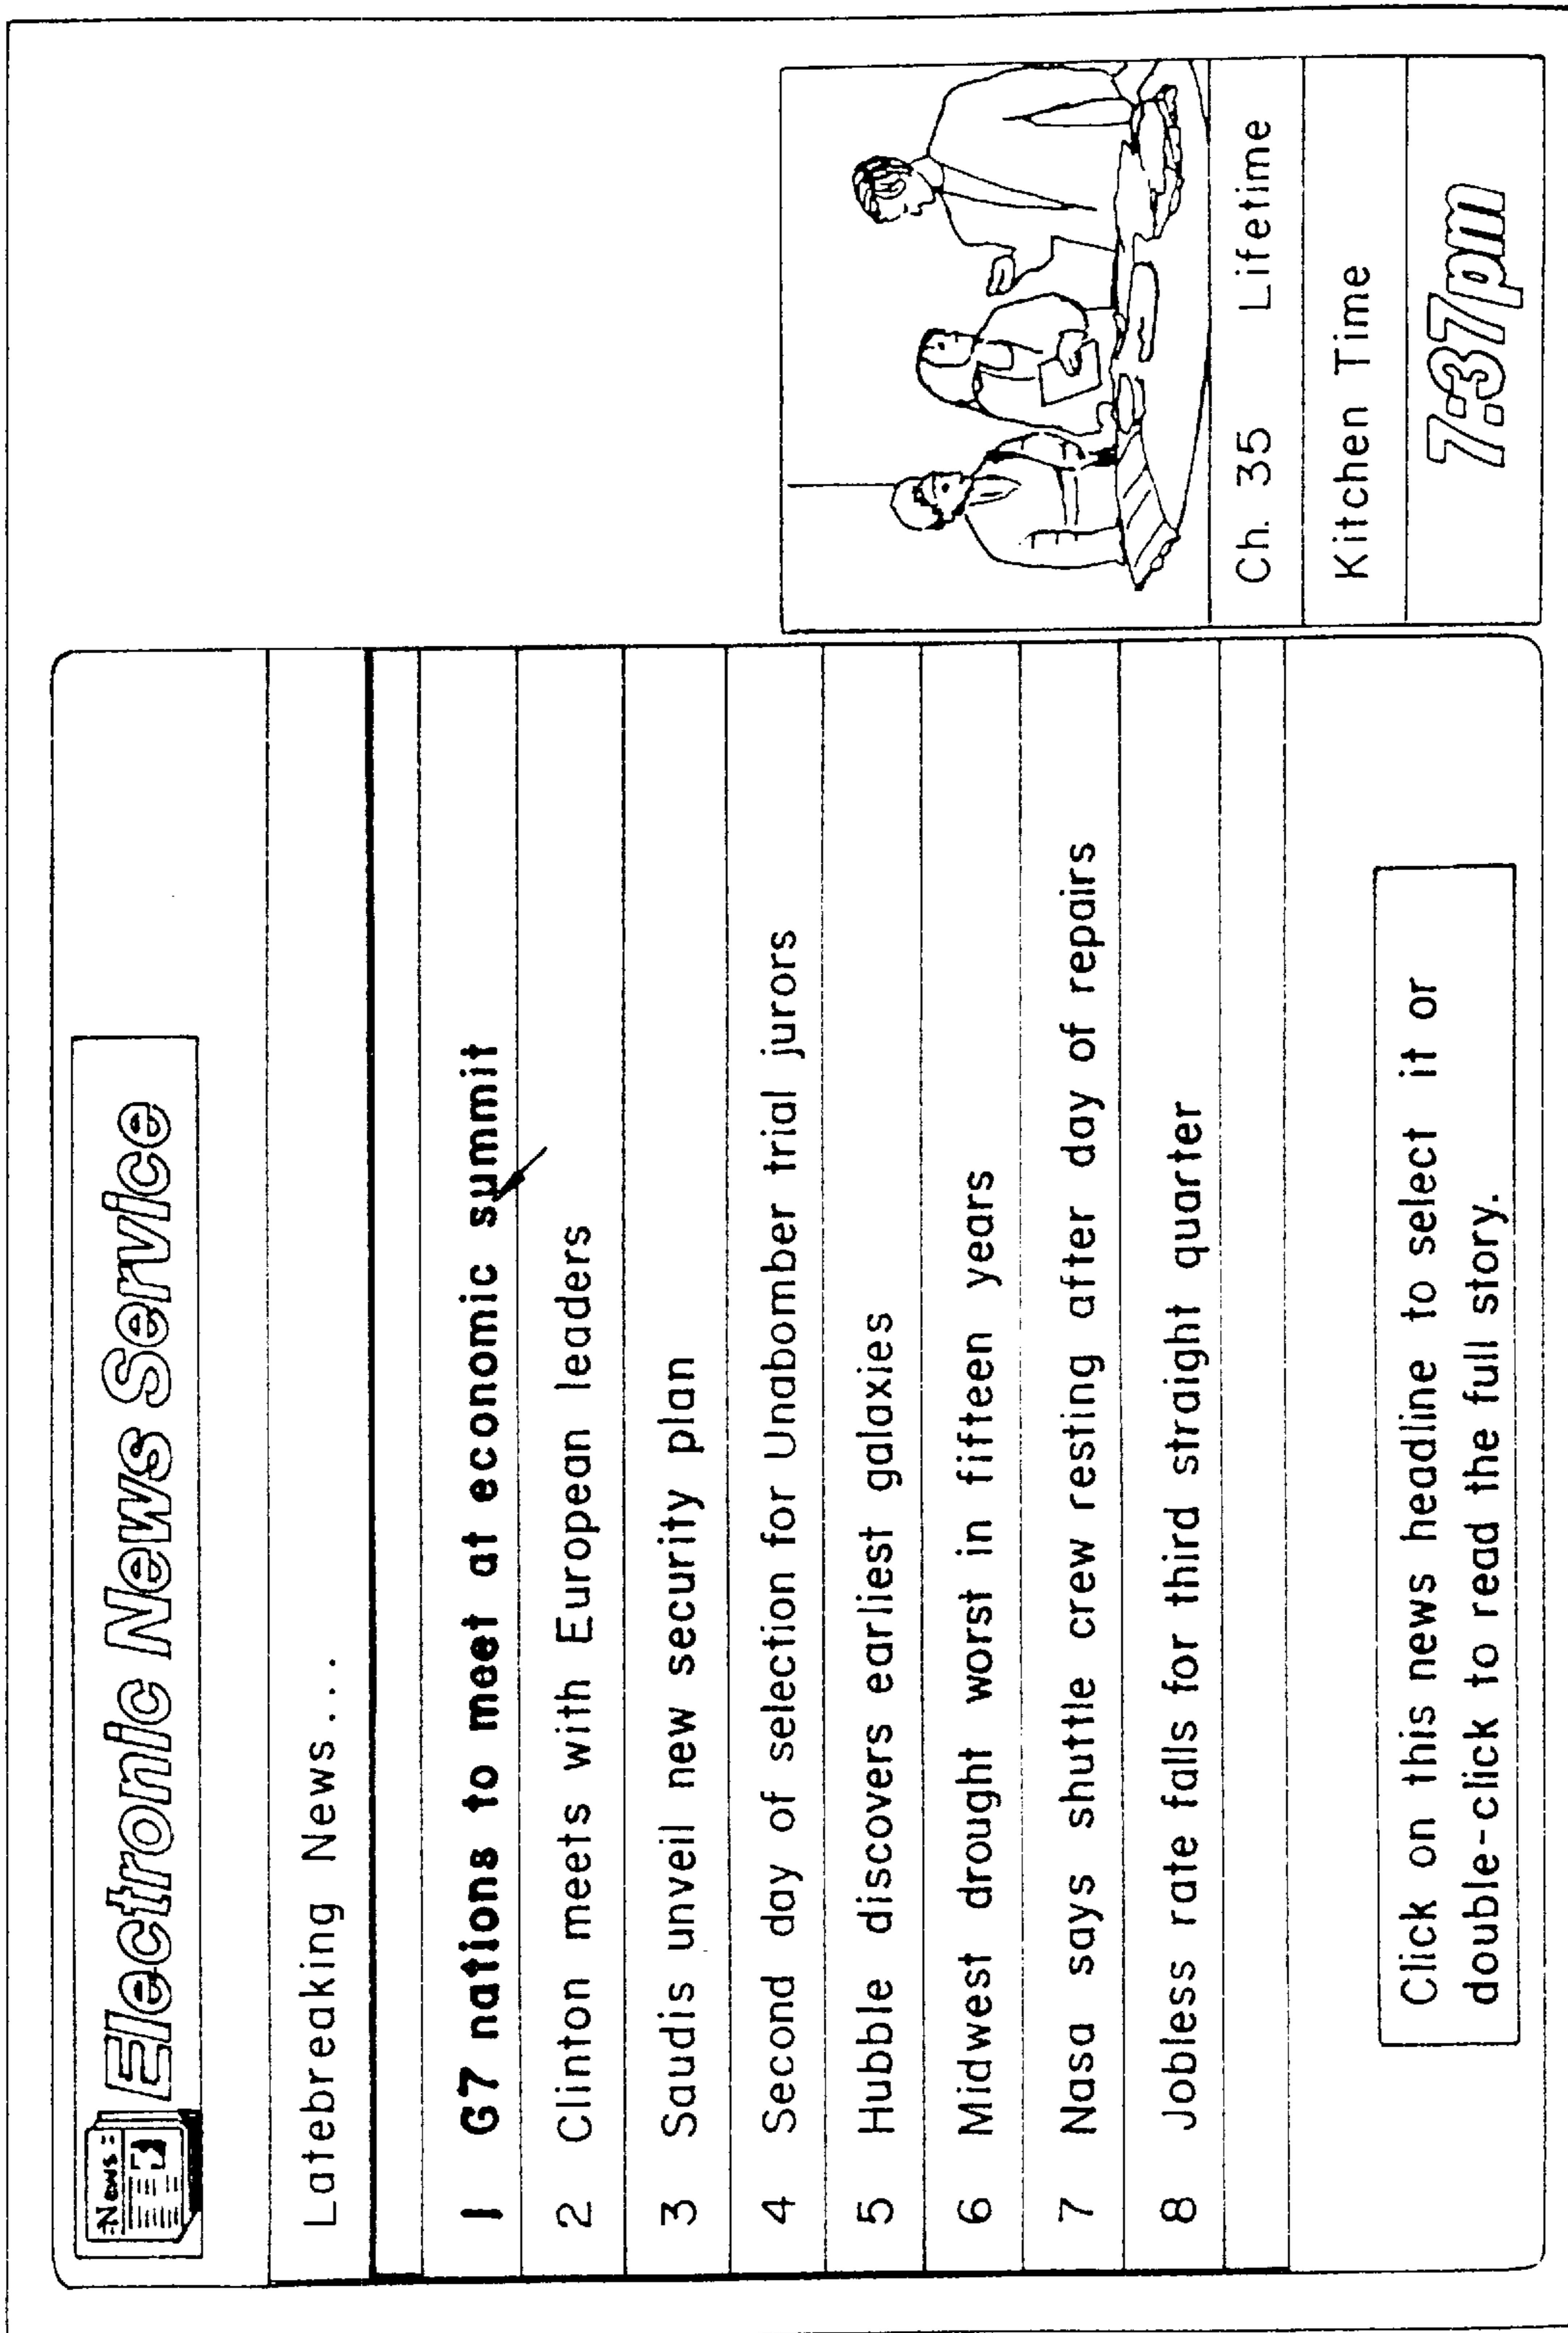 News
Electronic News Service
Latebreaking News...
1 G7 nations to meet at economic summit
2 Clinton meets with European leaders
3 Saudis unveil new security plan
4 Second day of selection for Unabomber trial jurors
5 Hubble discovers earliest galaxies
6 Midwest drought worst in fifteen years
7 Nasa says shuttle crew resting after day of repairs
8 Jobless rate falls for third straight quarter
Click on this news headline to select it or
double-click to read the full story.
Ch. 35 Lifetime
Kitchen Time
7:37pm